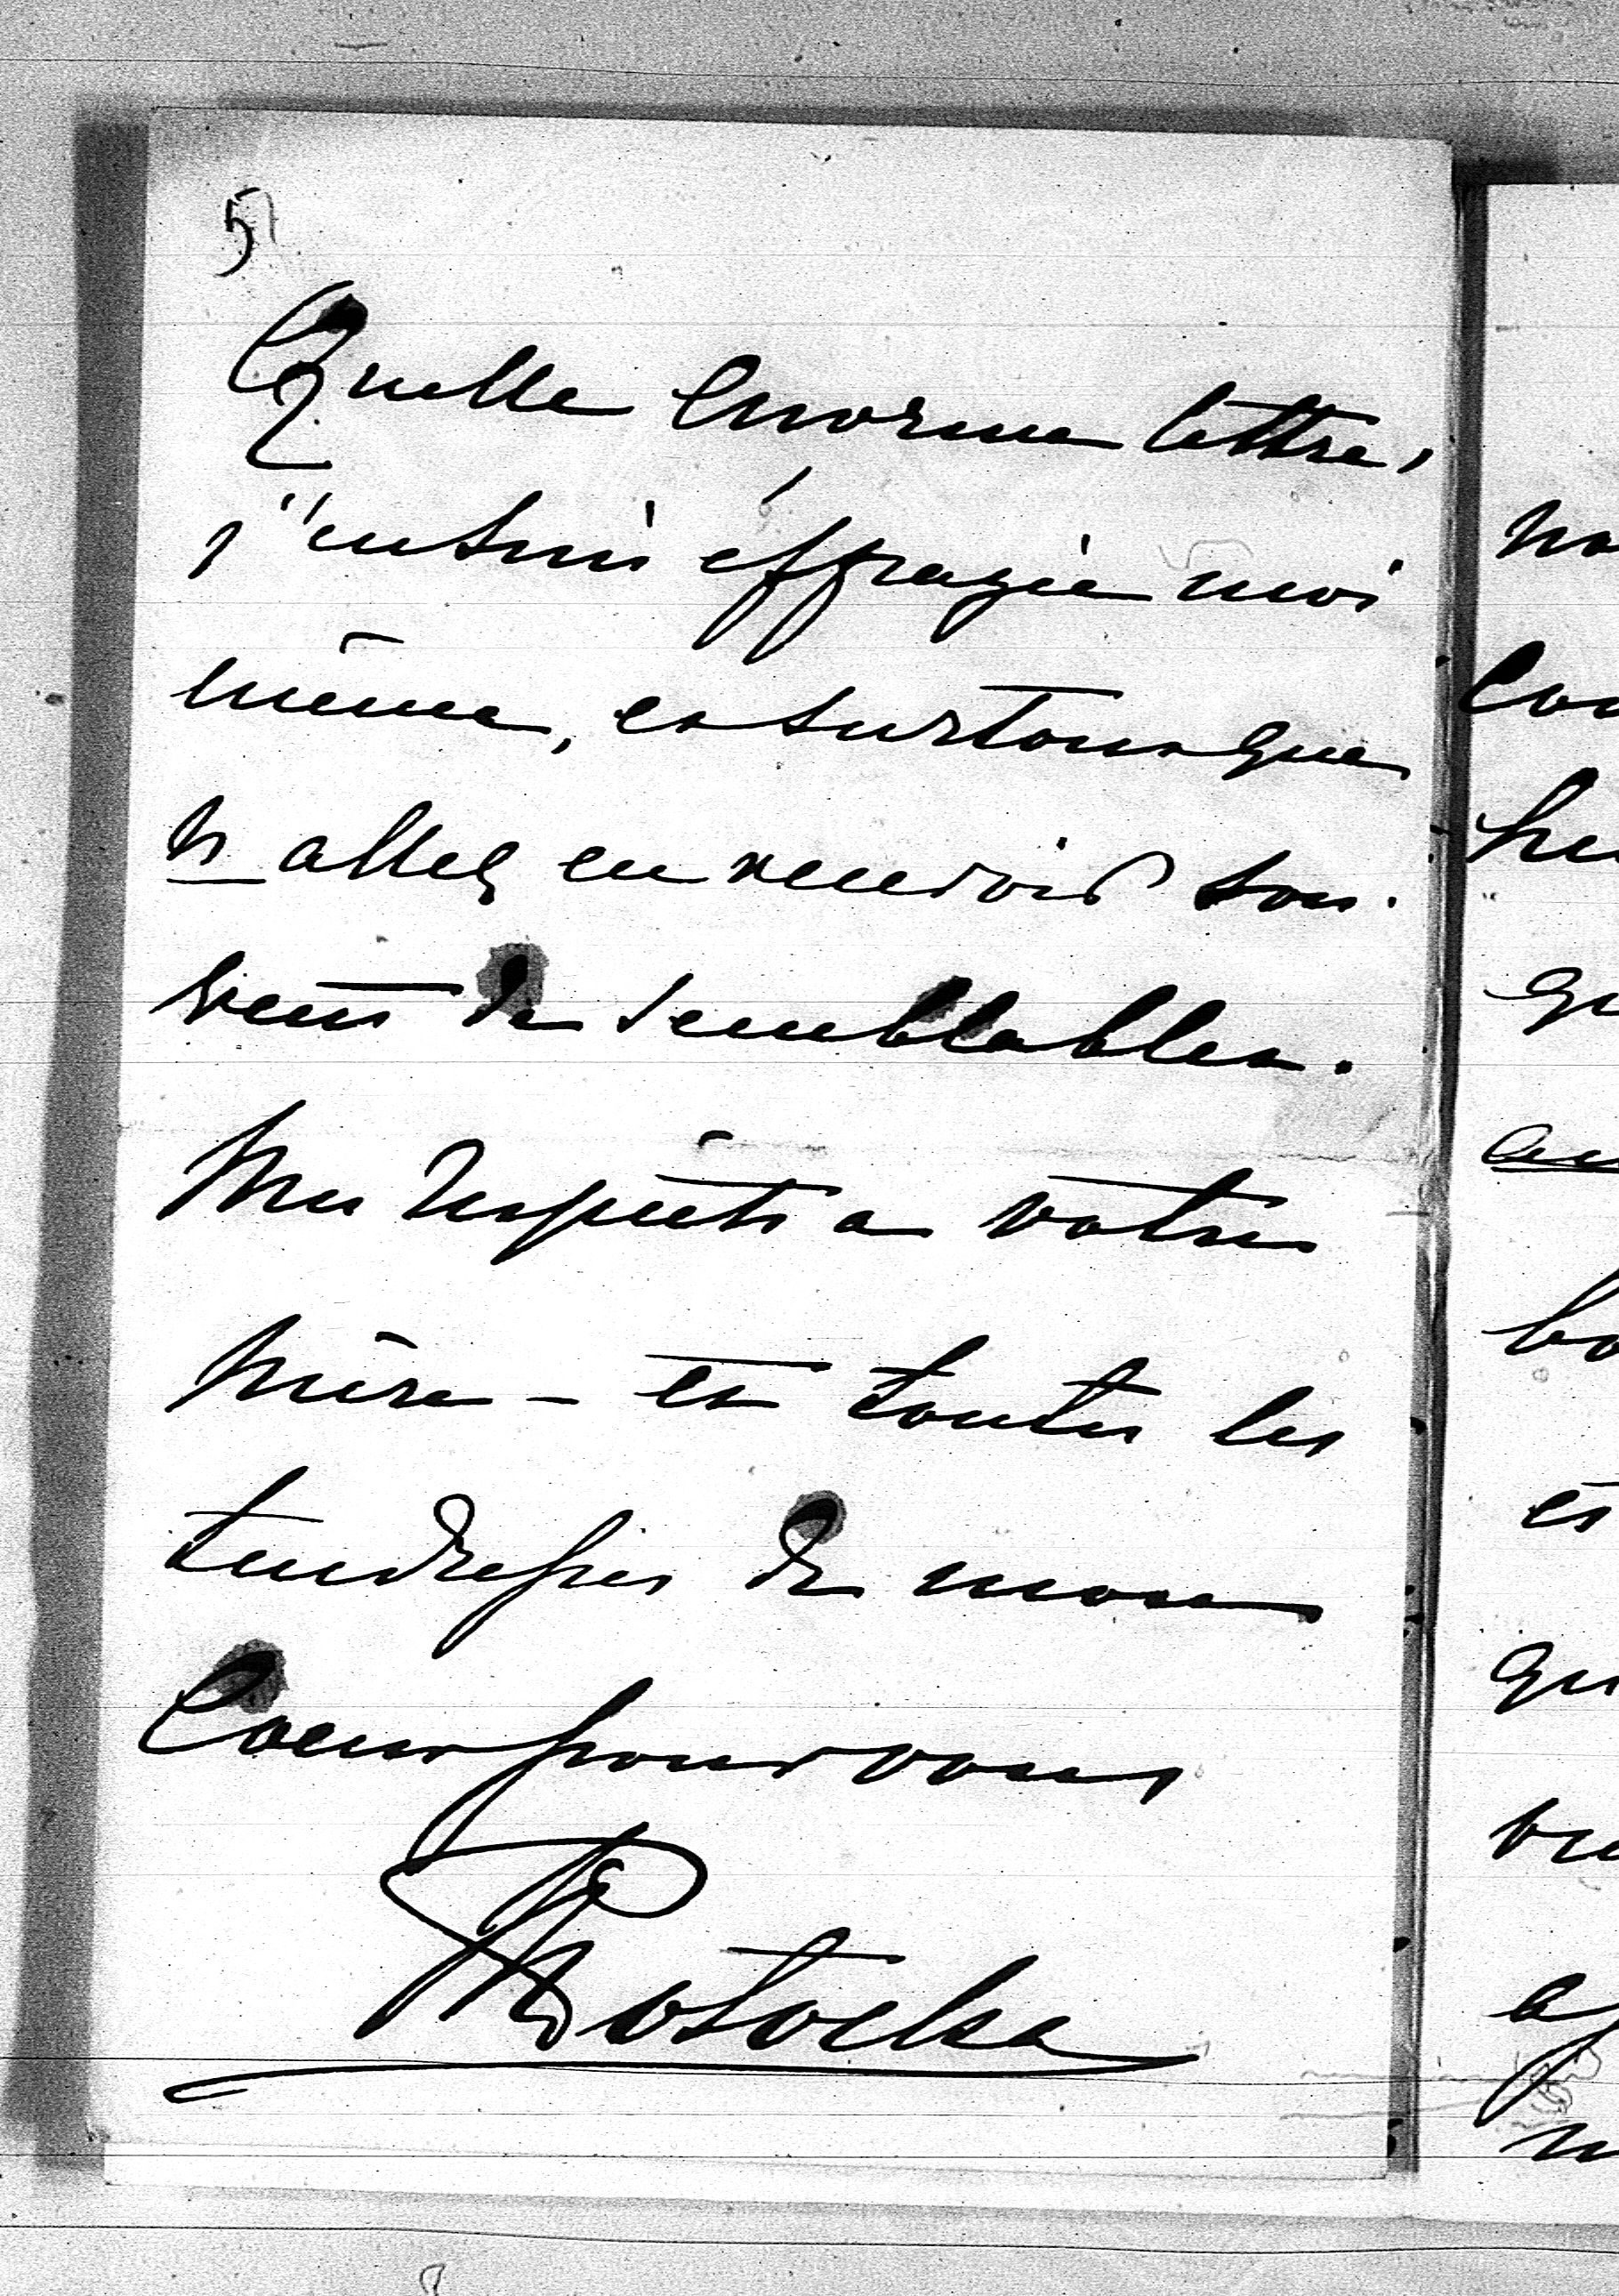 5
Quelle enorme lettre,
j'en suis éffrayée moi
même, et surtout que
v. allez en recevoir sou-
vent de semblables.
Mes respects a votre
mère – et toutes les
tendresses de mon
Coeur pour vous
Potocka
no
cou
he
qu
bo
et
qu